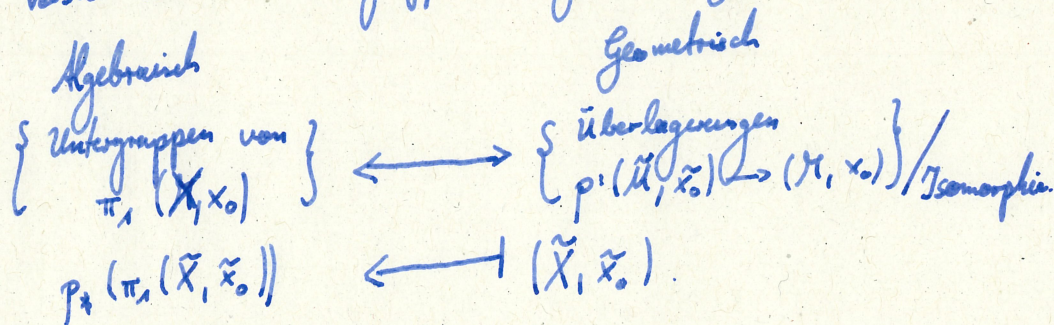 Algebraisch Geometrisch
{ Untergruppen von π₁ (X, x₀) } ⟷ { Überlagerungen p: (X̃, x̃₀) → (X, x₀) } / Isomorphie.
p_* (π₁ (X̃, x̃₀)) ⟻ (X̃, x̃₀).